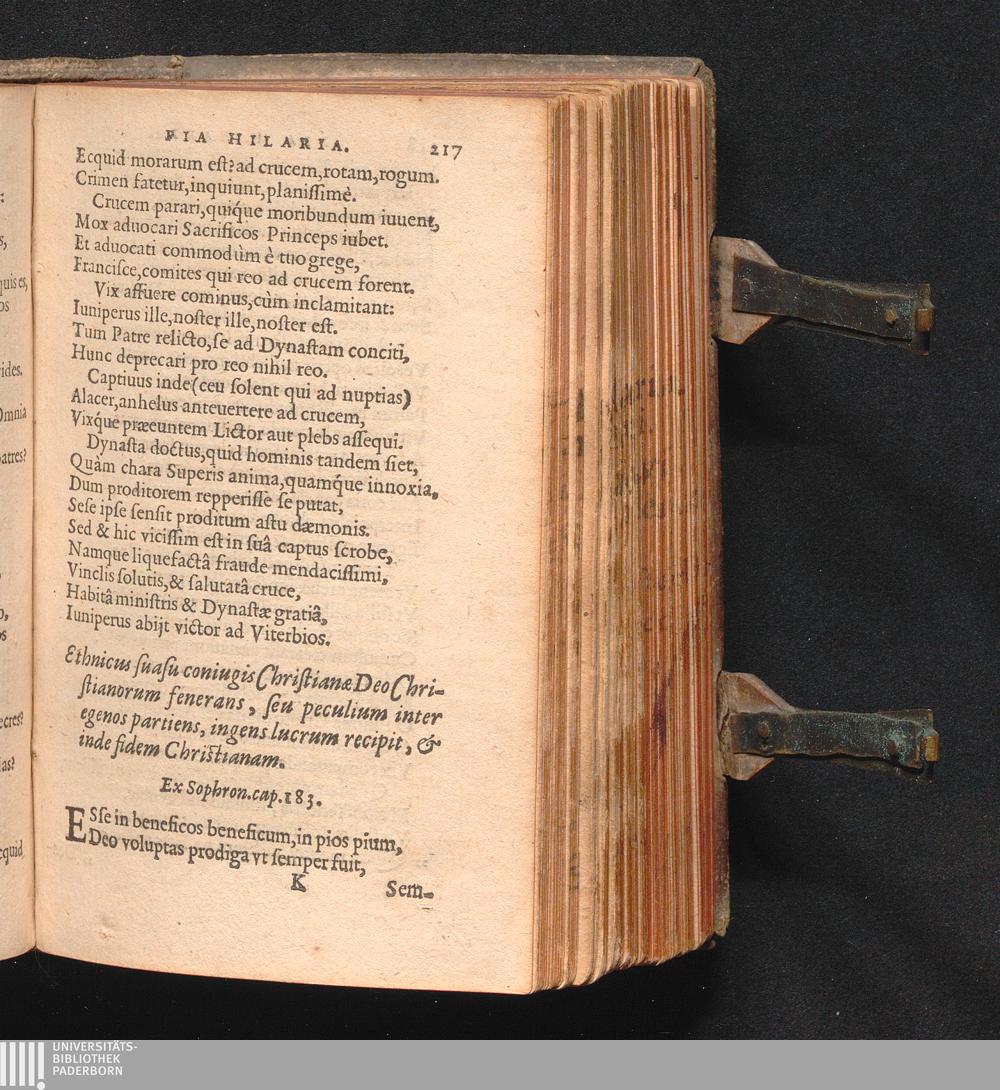 PIA HILARIA. 217
Ecquid morarum est? ad crucem, rotam, rogum.
Crimen fatetur, inquiunt, planissimè.
Crucem parari, quiq́ue moribundum iuuent,
Mox aduocari Sacrificos Princeps iubet.
Et aduocati commodùm è tuo grege,
Francisce, comites qui reo ad crucem forent.
Vix affuere cominus, cùm inclamitant:
Iuniperus ille, noster ille, noster est.
Tum Patre relicto, se ad Dynastam conciti,
Hunc deprecari pro reo nihil reo.
Captiuus inde (ceu solent qui ad nuptias)
Alacer, anhelus anteuertere ad crucem,
Vixq́ue præeuntem Lictor aut plebs assequi.
Dynasta doctus, quid hominis tandem siet,
Quàm chara Superis anima, quamq́ue innoxia,
Dum proditorem repperisse se putat,
Sese ipse sensit proditum astu dæmonis.
Sed & hic vicissim est in suâ captus scrobe,
Namque liquefactâ fraude mendacissimi,
Vinclis solutis, & salutatâ cruce,
Habitâ ministris & Dynastæ gratiâ,
Iuniperus abijt victor ad Viterbios.
Ethnicus suasu coniugis Christianæ Deo Chri-
stianorum fenerans, seu peculium inter
egenos partiens, ingens lucrum recipit, &
inde fidem Christianam.
Ex Sophron. cap. 183.
ESse in beneficos beneficum, in pios pium,
Deo voluptas prodiga vt semper fuit,
K Sem-
UNIVERSITÄTS-
BIBLIOTHEK
PADERBORN